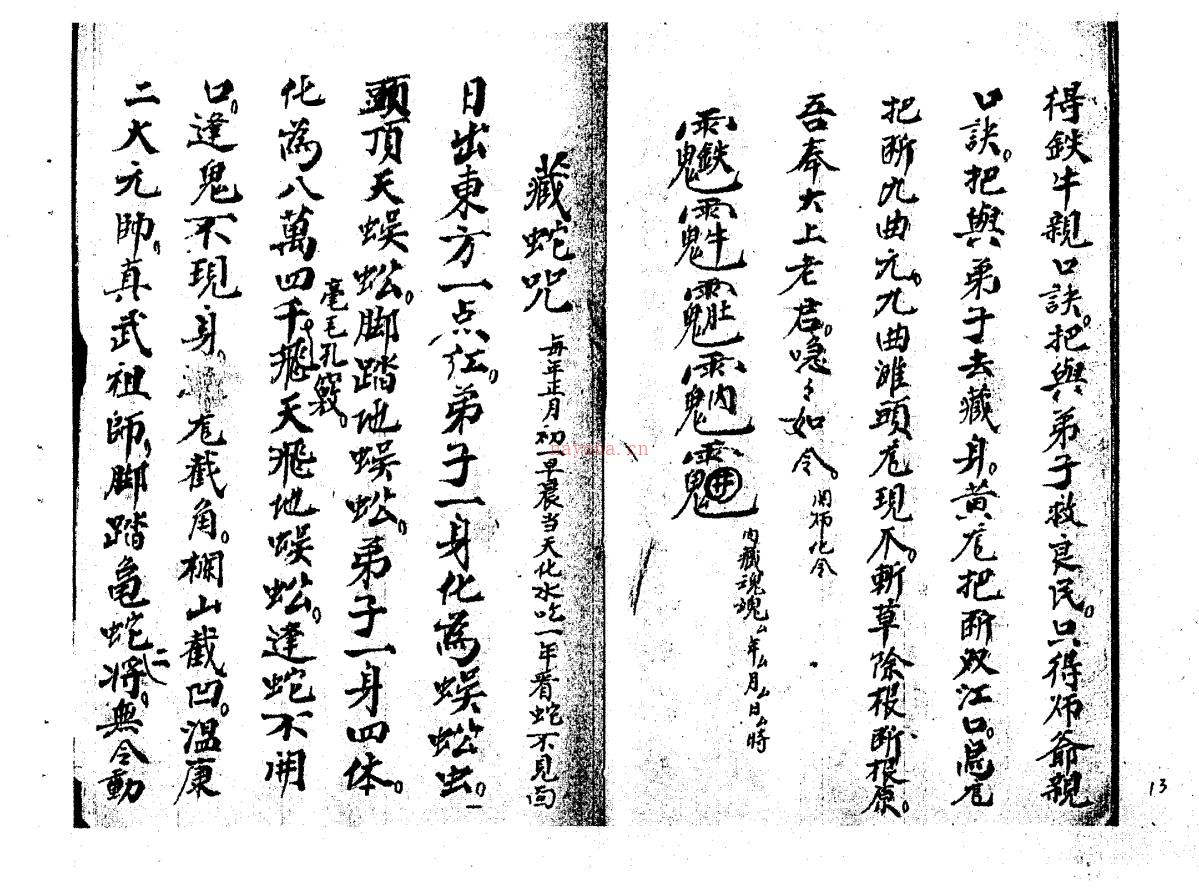 得鉄牛親口訣。把與弟子救良民。只得师爺親
口訣。把與弟子去藏身。黄尨把断双江口。尨
把断九曲九曲灘頭尨現爪。斬草除根断根原。
吾奉大上老君。急々如令。
用师化令
鉄牛肚内井
内藏魂魄厶年厶月厶日厶時
藏蛇咒
每年正月初一早晨当天化水吃一年看蛇不見面
日出東方一点红。弟子一身化為蜈蚣虫。一
頭頂天蜈蚣。脚踏地蜈蚣。弟子一身四体。
毫毛孔竅。
化為八萬四千飛天飛地蜈蚣。逢蛇不開
口。逢鬼不現身。尨截角。欄山截凹。温康
二大元帅。真武祖師。脚踏亀蛇二将。無令動
13